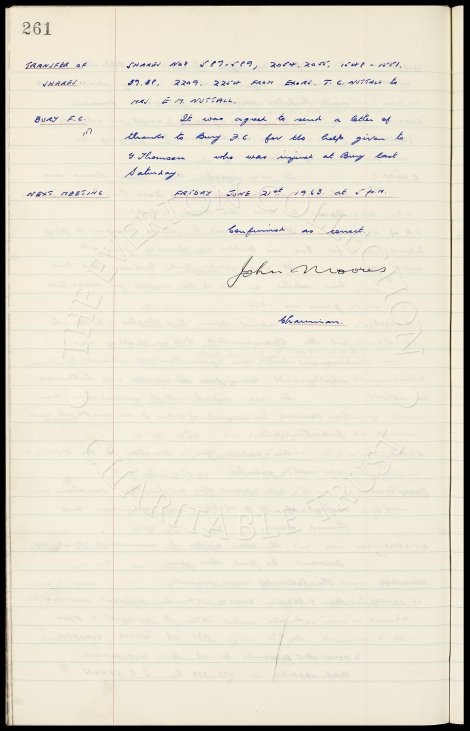 261
TRANSFER OF SHARES NOS 587-589, 2054, 2055, 1548-1551,
SHARES 87.88, 2209, 2254 FROM EXORS. T. C. NUTTALL to
MRS. E. M. NUTTALL.
BURY F.C. It was agreed to send a letter of
thanks to Bury F.C. for the help given to
G Thomson who was injured at Bury last
Saturday.
NEXT MEETING FRIDAY JUNE 21st 1963 at 5 p.m.
Confirmed as correct
John Moores
Chairman.
© THE EVERTON COLLECTION
CHARITABLE TRUST